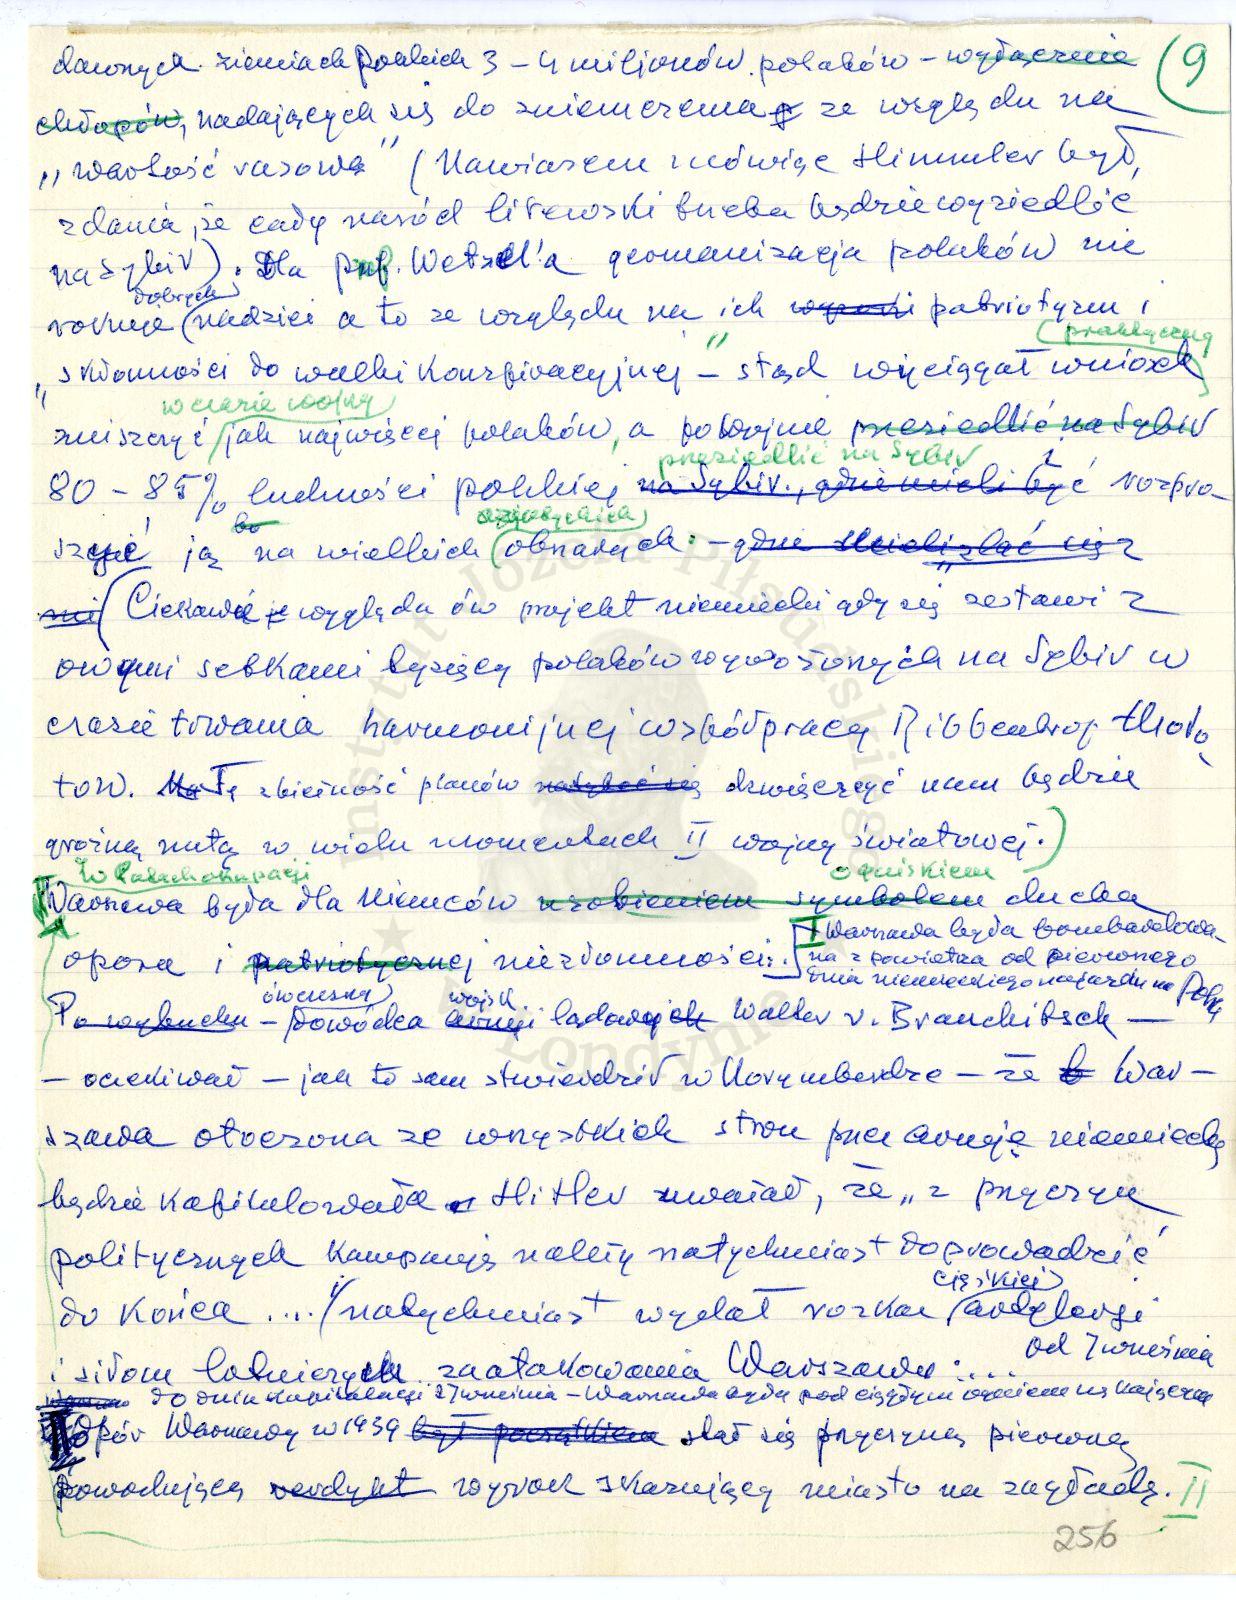 dawnych ziemiach polskich 3 – 4 miljonów polaków – wyłącznie
9
chłopów, nadających się do zniemczenia ze względu na
„wartość rasową” (Nawiasem mówiąc Himmler był
zdania, że cały naród litewski trzeba będzie wysiedlić
na Sybir). Dla prof. Wetzel'a germanizacja polaków nie
dobrych
rokuje nadziei a to ze względu na ich patriotyzm i
praktyczny
„skłonności do walki konspiracyjnej” – stąd wyciągał wniosek
w czasie wojny
zniszczyć jak najwięcej polaków, a potem przesiedlić na Sybir
przesiedlić na Sybir i
80 – 85% ludności polskiej na Sybir, gdzie mieli być rozpro-
azjatyckich
szyć ją na wielkich obszarach. – gdzie
(Ciekawie wygląda ów projekt niemiecki gdy się zestawi z
owymi setkami tysięcy polaków wywożonych na Sybir w
czasie trwania harmonijnej współpracy Ribbentrop Moło-
tow. Ta zbieżność planów dźwięczyć nam będzie
groźną nutą w wielu momentach II wojny światowej.)
W latach okupacji
ogniskiem
Warszawa była dla Niemców symbolem ducha
oporu i patriotycznej niezłomności.
I Warszawa była bombardowa-
na z powietrza od pierwszego
dnia niemieckiego najazdu na Polskę
ówczesny
wojsk
Po wybuchu – dowódca armji lądowych Walter v. Brauchitsch –
– oczekiwał – jak to sam stwierdził w Norymberdze – że War-
szawa otoczona ze wszystkich stron przez armię niemiecką
będzie kapitulowała. Hitler uważał, że „z przyczyn
politycznych kampanję należy natychmiast doprowadzić
do końca ....” natychmiast wydał rozkaz
ciężkiej
artylerji
i siłom lotniczym zaatakowania Warszawy ....
od 7 września
do dnia kapitulacji 27 września – Warszawa była pod ciągłym ogniem niszczącym
Opór Warszawy w 1939 był początkiem stał się przyczyną pierwszą
powodującą werdykt wyrok skazujący miasto na zagładę. II
256
Instytut Józefa Piłsudskiego
w Londynie